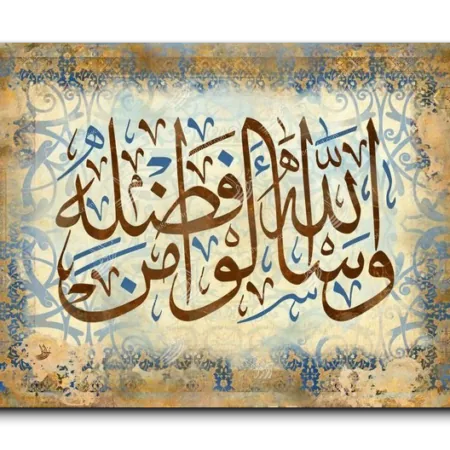 واسألوا الله من فضله